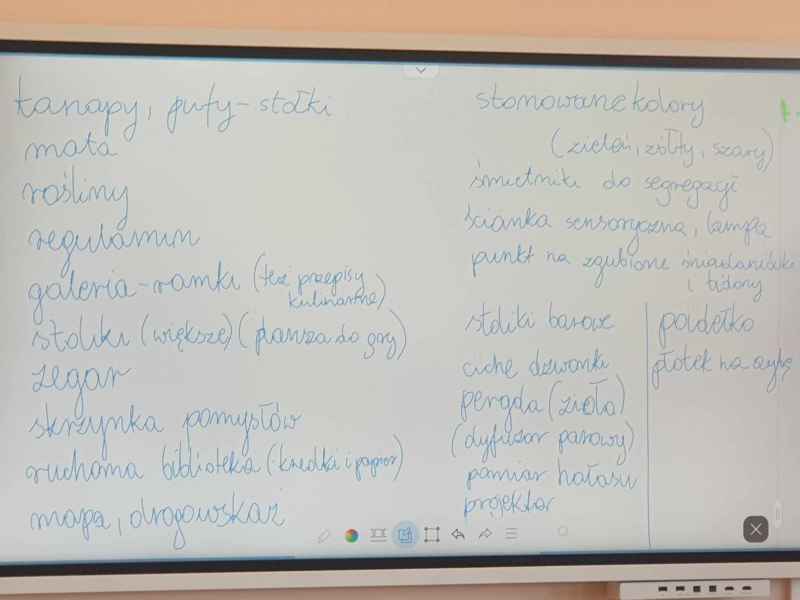 kanapy, pufy - stołki
mata
rośliny
regulamin
galeria - ramki (też przepisy
kulinarne)
stoliki (większe) (plansza do gry)
zegar
skrzynka pomysłów
ruchoma biblioteka (kredki i papier)
mapa, drogowskaz
stonowane kolory
(zieleń, żółty, szary)
śmietniki do segregacji
ścianka sensoryczna, lampa
punkt na zgubione śniadaniówki
i bidony
stoliki barowe
ciche dzwonki
pergola (zioła)
(dyfuzor parowy)
pomiar hałasu
projektor
pudełko
płotek na